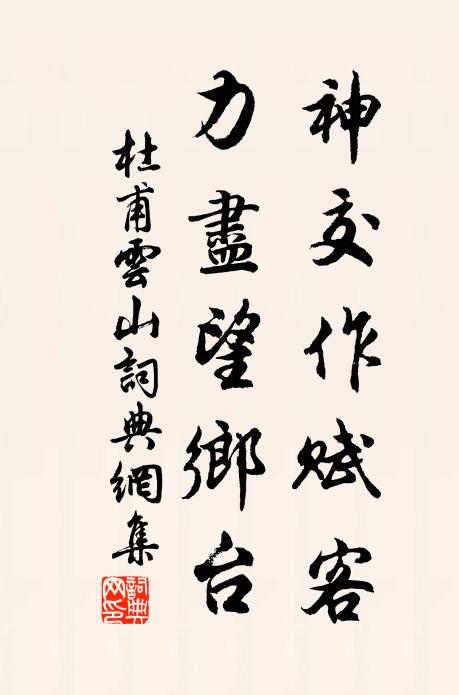 神交作賦客
力盡望鄉台
杜甫雲山詞典網集
詞典网印